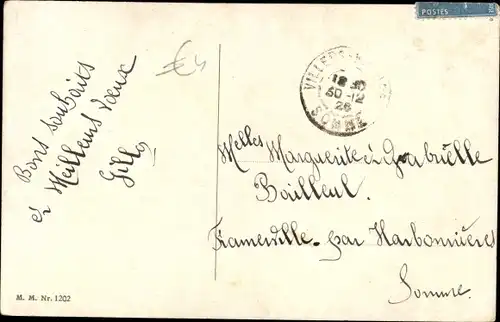 POSTES
€4
VILLERS-
18 30
30-12
26
SOMME
Bons souhaits
et Meilleurs Vœux
Gilles
Melles Marguerite et Gabrielle
Bailleul.
Framerville - par Harbonnières
Somme.
M. M. Nr. 1202